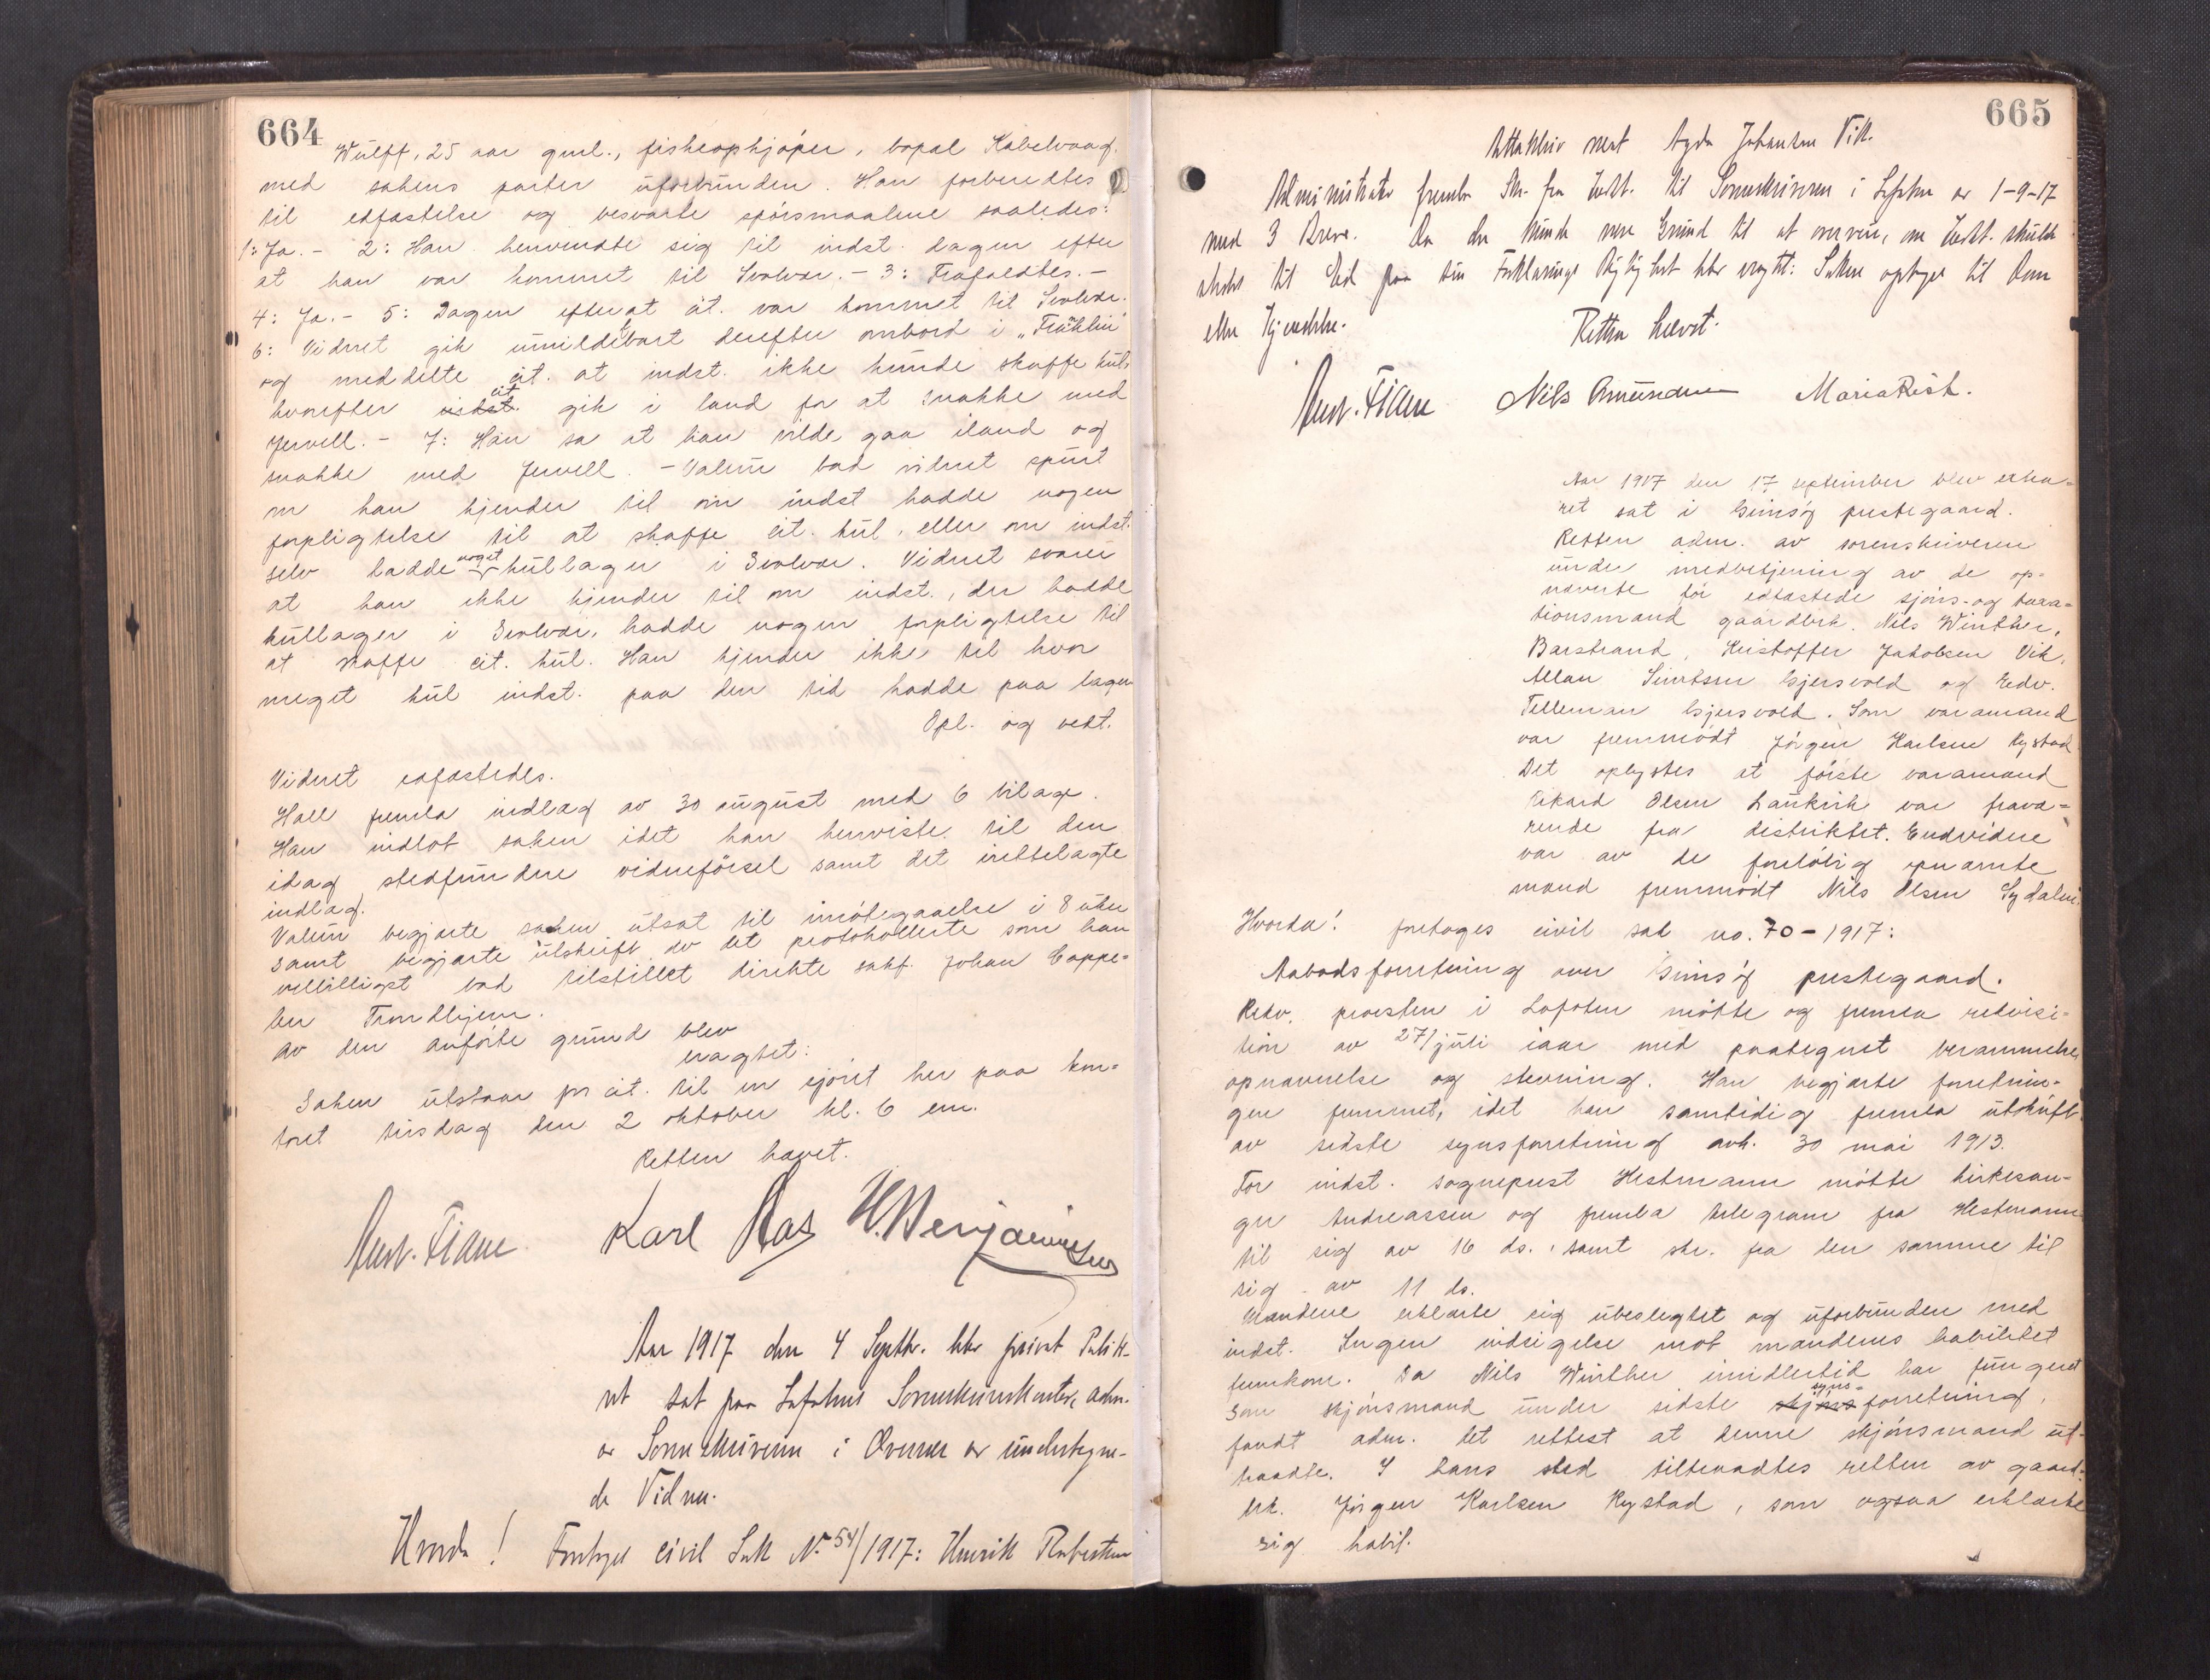 664
Wulff, 25 aar gml., fiskeophjøper, bopæl Kabelvaag.
med sakens parter uforbunden. Han forberedtes
til edfæstelse og besvarte spørsmaalene saaledes:
1: Ja. - 2: Han henvendte sig til indst. dagen efter
at han var kommet til Svolvær. - 3: Frafaldtes. -
4: Ja. - 5: Dagen efter at cit. var kommet til Svolvær.
6: Vidnet gik umiddelbart derefter ombord i "
og meddelte cit. at indst. ikke kunde skaffe kul,
hvorefter indst. cit. gik i land for at snakke med
Jervell. - 7: Han sa at han vilde gaa iland og
snakke med Jervell. - Valeur bad vidnet spurt
om han kjender til om indst hadde nogen
forpligtelse til at skaffe cit. kul, eller om indst.
selv hadde noget kullager i Svolvær. Vidnet svarer
at han ikke kjender til om indst., der hadde
kullager i Svolvær, hadde nogen forpligtelse til
at skaffe cit. kul. Han kjender ikke til hvor
meget kul indst. paa den tid hadde paa lager
Opl. og vedt.
Vidnet edfæstedes.
Hall fremla indlæg av 30 august med 6 bilag.
Han indlot saken idet han henviste til den
idag stedfundne vidneførsel samt det irettelagte
indlæg.
Valeur begjærte saken utsat til imøtegaaelse i 8 uker
samt begjærte utskrift av det protokollerte som han
velvilligst bad tilstillet direkte sakf. Johan Cappe-
len Trondhjem.
Av den anførte grund blev
eragtet:
Saken utstaar pr cit. til en sjøret her paa kon-
toret tirsdag den 2 oktober kl. 6 em.
Retten hævet.
Karl Aas H. Benjaminsen
Aar 1917 den 4 Septbr. blev privat Politi-
ret sat paa Lofotens Sorenskriverkontor, adm.
av Sorenskriveren i Overvær av undertegne-
de Vidner.
Hvorda! Foretoges civil Sak No 54/1917: Henrik Robertsen
665
Attakliv mot Agda Johansen Vik.
Administrator fremla Skr. fra Indst. til Sorenskriveren i Lofoten av 1-9-17
med 3 Breve. Da der kunde være Grund til at overveie, om Indst. skulde
stedes til Ed paa sin Forklarings Rigtighed blev eragtet: Saken optages til Dom
eller Kjendelse.
Retten hævet.
Nils Amundsen Maria Risk.
Aar 1917 den 17 september blev ekstra-
ret sat i Gimsøy prestegaard.
Retten adm. av sorenskriveren
under medbetjening av de op-
nævnte før edfæstede skjøns- og taxa-
tionsmænd gaardbrk. Nils Winther,
Barstrand, Kristoffer Jakobsen Vik,
Allan Simonsen Gjersvold og Edv.
Telleman Gjersvold. Som varamand
var fremmødt Jørgen Karlsen Rystad
Det oplystes at første varamand
Rikard Olsen Laukvik var fravæ-
rende fra distriktet. Endvidere
var av de foreløbig opnævnte
mænd fremmødt Nils Olsen Sydalen.
Hvorda! foretoges civil sak no. 70-1917:
Aabodsforretning over Gimsøy prestegaard.
Rekv. provsten i Lofoten møtte og fremla rekvisi-
tion av 27/juli iaar med paategnet berammelse,
opnævnelse og stevning. Han begjærte forretnin-
gen fremmet, idet han samtidig fremla utskrift
av sidste synsforretning avh. 30 mai 1913.
For indst. sogneprest Hestmann møtte kirkesan-
ger Andreassen og fremla telegram fra Hestmann
til sig av 16 ds., samt skr. fra den samme til
sig av 11 ds.
Mændene erklærte sig ubeslegtet og uforbunden med
indst. Ingen indsigelse mot mændenes habilitet
fremkom. Da Nils Winther imidlertid har fungeret
som skjønsmand under sidste skjøns syns-forretning,
fandt adm. det rettest at denne skjønsmand ut-
traadte. I hans sted tiltraadtes retten av gaard-
brk. Jørgen Karlsen Rystad, som ogsaa erklærte
sig habil.